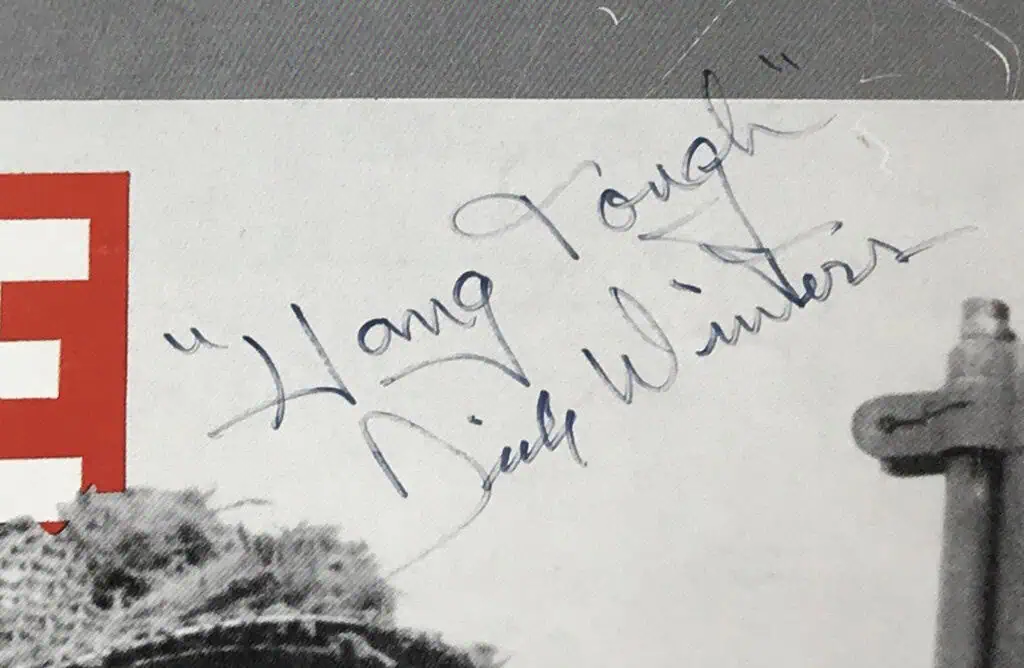 "Hang Tough"
Dick Winters